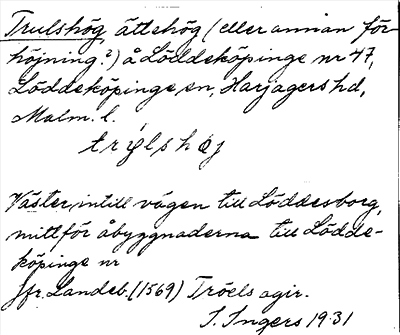 Trulshög ättehög (eller annan för-
höjning?) å Löddeköpinge nr 47,
Löddeköpinge sn, Harjagers hd,
Malm. l.
Väster, intill vägen till Löddesborg,
mittför åbyggnaderna till Lödde-
köpinge nr
Jfr. Landeb. (1569) Tröels agir.
I. Ingers 1931